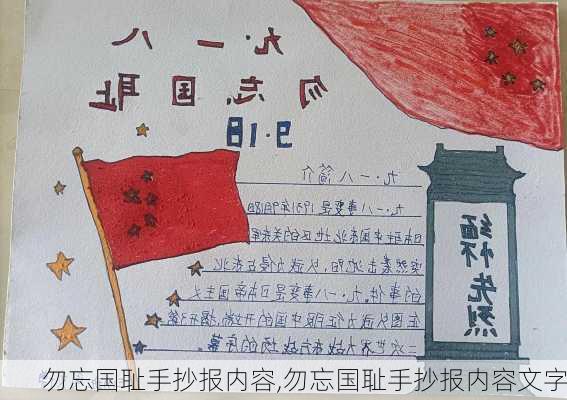 九·一八
勿忘国耻
9.18
九·一八简介
九·一八事变是1931年9月18日
日本驻中国东北地区的关东军
突然袭击沈阳，以武力侵占东北
的事件。九·一八事变是日本帝国主义
图以武力征服中国的开端，揭开了第
二次世界大战东方战场的序幕
缅怀先烈
勿忘国耻手抄报内容,勿忘国耻手抄报内容文字